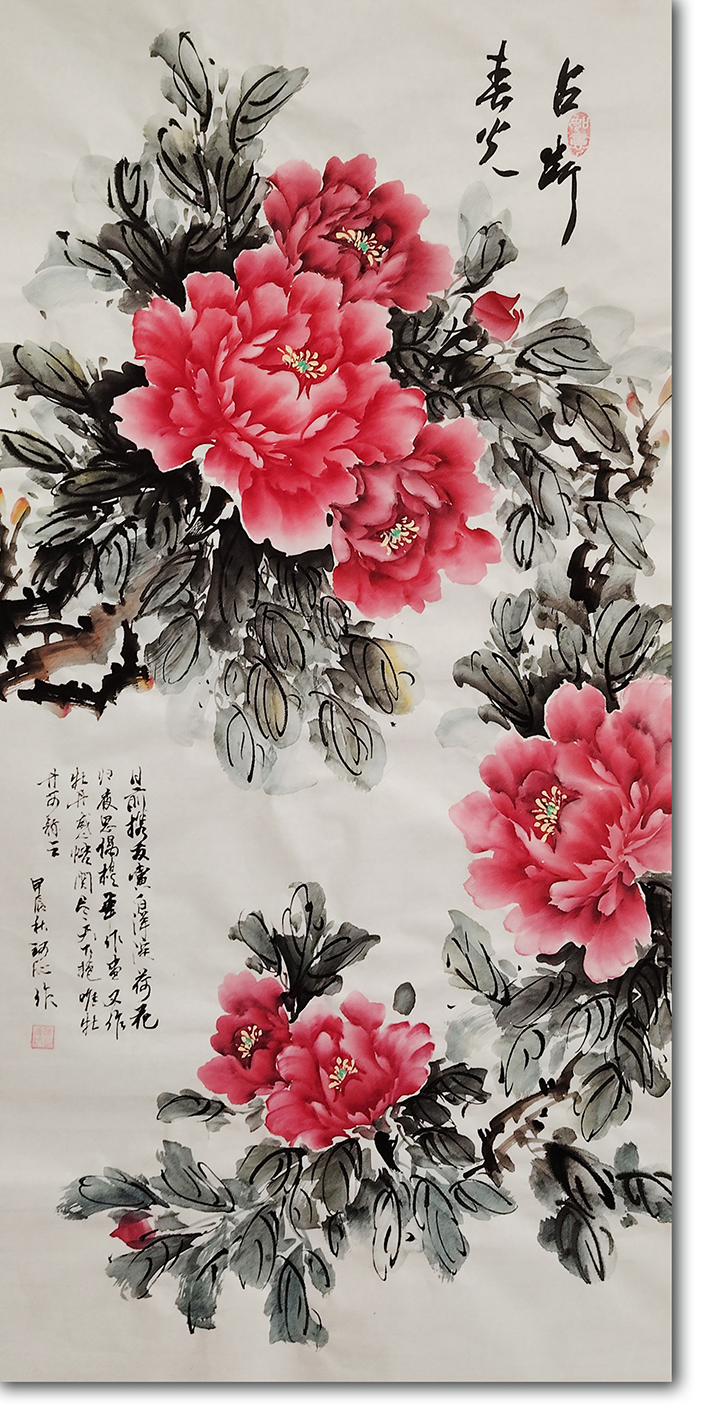 占断
春光
日前携友赏白洋淀荷花
归夜思偶提笔作画又作
牡丹感慨阅尽天下艳唯牡
丹可称云
甲辰秋 作